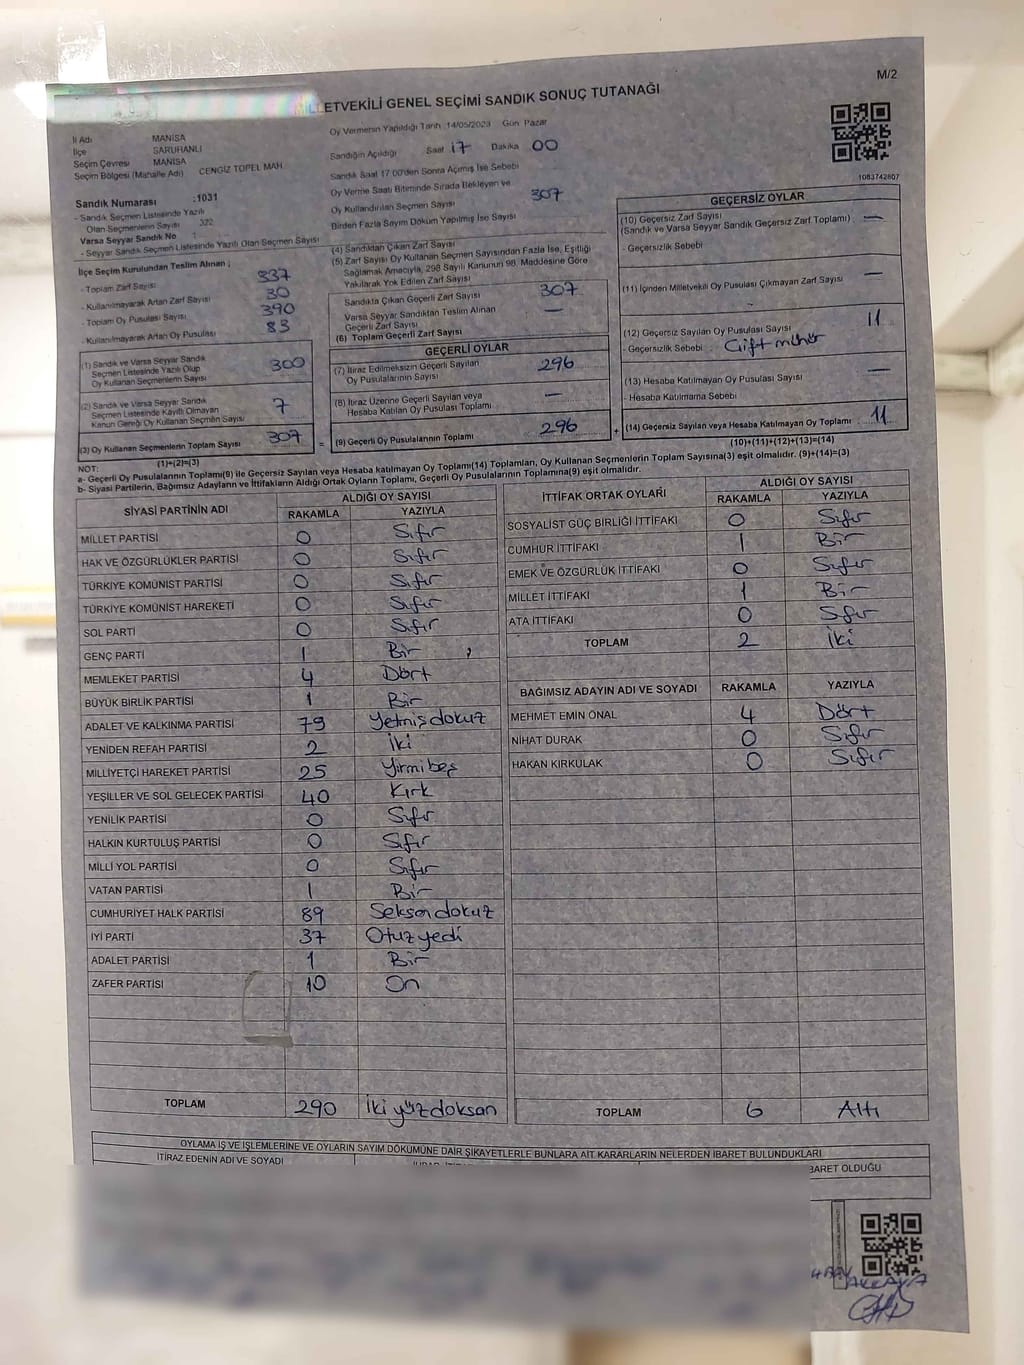 M/2
LETVEKİLİ GENEL SEÇİMİ SANDIK SONUÇ TUTANAĞI
İl Adı MANİSA
İlçe SARUHANLI
Seçim Çevresi MANİSA
Seçim Bölgesi (Mahalle Adı) CENGİZ TOPEL MAH.
Sandık Numarası :1031
- Sandık Seçmen Listesinde Yazılı
Olan Seçmenlerin Sayısı 322
Varsa Seyyar Sandık No
- Seyyar Sandık Seçmen Listesinde Yazılı Olan Seçmen Sayısı
İlçe Seçim Kurulundan Teslim Alınan ;
- Toplam Zarf Sayısı 337
- Kullanılmayarak Artan Zarf Sayısı 30
- Toplam Oy Pusulası Sayısı 390
- Kullanılmayarak Artan Oy Pusulası 83
(1) Sandık ve Varsa Seyyar Sandık
Seçmen Listesinde Yazılı Olup
Oy Kullanan Seçmenlerin Sayısı 300
(2) Sandık ve Varsa Seyyar Sandık
Seçmen Listesinde Kayıtlı Olmayan
Kanun Gereği Oy Kullanan Seçmen Sayısı 7
(3) Oy Kullanan Seçmenlerin Toplam Sayısı 307 =
(1)+(2)=(3)
Oy Vermenin Yapıldığı Tarih 14/05/2023 Gün Pazar
Sandığın Açıldığı Saat 17 Dakika 00
Sandık Saat 17:00'den Sonra Açılmış İse Sebebi
Oy Verme Saati Bitiminde Sırada Bekleyen ve
Oy Kullandırılan Seçmen Sayısı
Birden Fazla Sayım Döküm Yapılmış İse Sayısı
307
(4) Sandıktan Çıkan Zarf Sayısı
(5) Zarf Sayısı Oy Kullanan Seçmen Sayısından Fazla İse, Eşitliği
Sağlamak Amacıyla, 298 Sayılı Kanunun 98. Maddesine Göre
Yakılarak Yok Edilen Zarf Sayısı
Sandıkta Çıkan Geçerli Zarf Sayısı 307
Varsa Seyyar Sandıktan Teslim Alınan
Geçerli Zarf Sayısı —
(6) Toplam Geçerli Zarf Sayısı
GEÇERLİ OYLAR
(7) İtiraz Edilmeksizin Geçerli Sayılan
Oy Pusulalarının Sayısı 296
(8) İtiraz Üzerine Geçerli Sayılan veya
Hesaba Katılan Oy Pusulası Toplamı —
(9) Geçerli Oy Pusulalarının Toplamı 296 +
1083742807
GEÇERSİZ OYLAR
(10) Geçersiz Zarf Sayısı
(Sandık ve Varsa Seyyar Sandık Geçersiz Zarf Toplamı) —
- Geçersizlik Sebebi
(11) İçinden Milletvekili Oy Pusulası Çıkmayan Zarf Sayısı —
(12) Geçersiz Sayılan Oy Pusulası Sayısı 11
- Geçersizlik Sebebi : Çift mühür
(13) Hesaba Katılmayan Oy Pusulası Sayısı —
- Hesaba Katılmama Sebebi
(14) Geçersiz Sayılan veya Hesaba Katılmayan Oy Toplamı : 11
(10)+(11)+(12)+(13)=(14)
NOT:
a- Geçerli Oy Pusulalarının Toplamı(9) ile Geçersiz Sayılan veya Hesaba katılmayan Oy Toplamı(14) Toplamları, Oy Kullanan Seçmenlerin Toplam Sayısına(3) eşit olmalıdır. (9)+(14)=(3)
b- Siyasi Partilerin, Bağımsız Adayların ve İttifakların Aldığı Ortak Oyların Toplamı, Geçerli Oy Pusulalarının Toplamına(9) eşit olmalıdır.
SİYASİ PARTİNİN ADI ALDIĞI OY SAYISI
RAKAMLA YAZIYLA
MİLLET PARTİSİ 0 Sıfır
HAK VE ÖZGÜRLÜKLER PARTİSİ 0 Sıfır
TÜRKİYE KOMÜNİST PARTİSİ 0 Sıfır
TÜRKİYE KOMÜNİST HAREKETİ 0 Sıfır
SOL PARTİ 0 Sıfır
GENÇ PARTİ 1 Bir
MEMLEKET PARTİSİ 4 Dört
BÜYÜK BİRLİK PARTİSİ 1 Bir
ADALET VE KALKINMA PARTİSİ 79 Yetmiş dokuz
YENİDEN REFAH PARTİSİ 2 İki
MİLLİYETÇİ HAREKET PARTİSİ 25 Yirmi beş
YEŞİLLER VE SOL GELECEK PARTİSİ 40 Kırk
YENİLİK PARTİSİ 0 Sıfır
HALKIN KURTULUŞ PARTİSİ 0 Sıfır
MİLLİ YOL PARTİSİ 0 Sıfır
VATAN PARTİSİ 1 Bir
CUMHURİYET HALK PARTİSİ 89 Seksen dokuz
İYİ PARTİ 37 Otuz yedi
ADALET PARTİSİ 1 Bir
ZAFER PARTİSİ 10 On
TOPLAM 290 İki yüz doksan
İTTİFAK ORTAK OYLARI ALDIĞI OY SAYISI
RAKAMLA YAZIYLA
SOSYALİST GÜÇ BİRLİĞİ İTTİFAKI 0 Sıfır
CUMHUR İTTİFAKI 1 Bir
EMEK VE ÖZGÜRLÜK İTTİFAKI 0 Sıfır
MİLLET İTTİFAKI 1 Bir
ATA İTTİFAKI 0 Sıfır
TOPLAM 2 İki
BAĞIMSIZ ADAYIN ADI VE SOYADI RAKAMLA YAZIYLA
MEHMET EMİN ÖNAL 4 Dört
NİHAT DURAK 0 Sıfır
HAKAN KIRKULAK 0 Sıfır
TOPLAM 6 Altı
OYLAMA İŞ VE İŞLEMLERİNE VE OYLARIN SAYIM DÖKÜMÜNE DAİR ŞİKAYETLERLE BUNLARA AİT KARARLARIN NELERDEN İBARET BULUNDUKLARI
İTİRAZ EDENİN ADI VE SOYADI
BARET OLDUĞU
AKKAYA